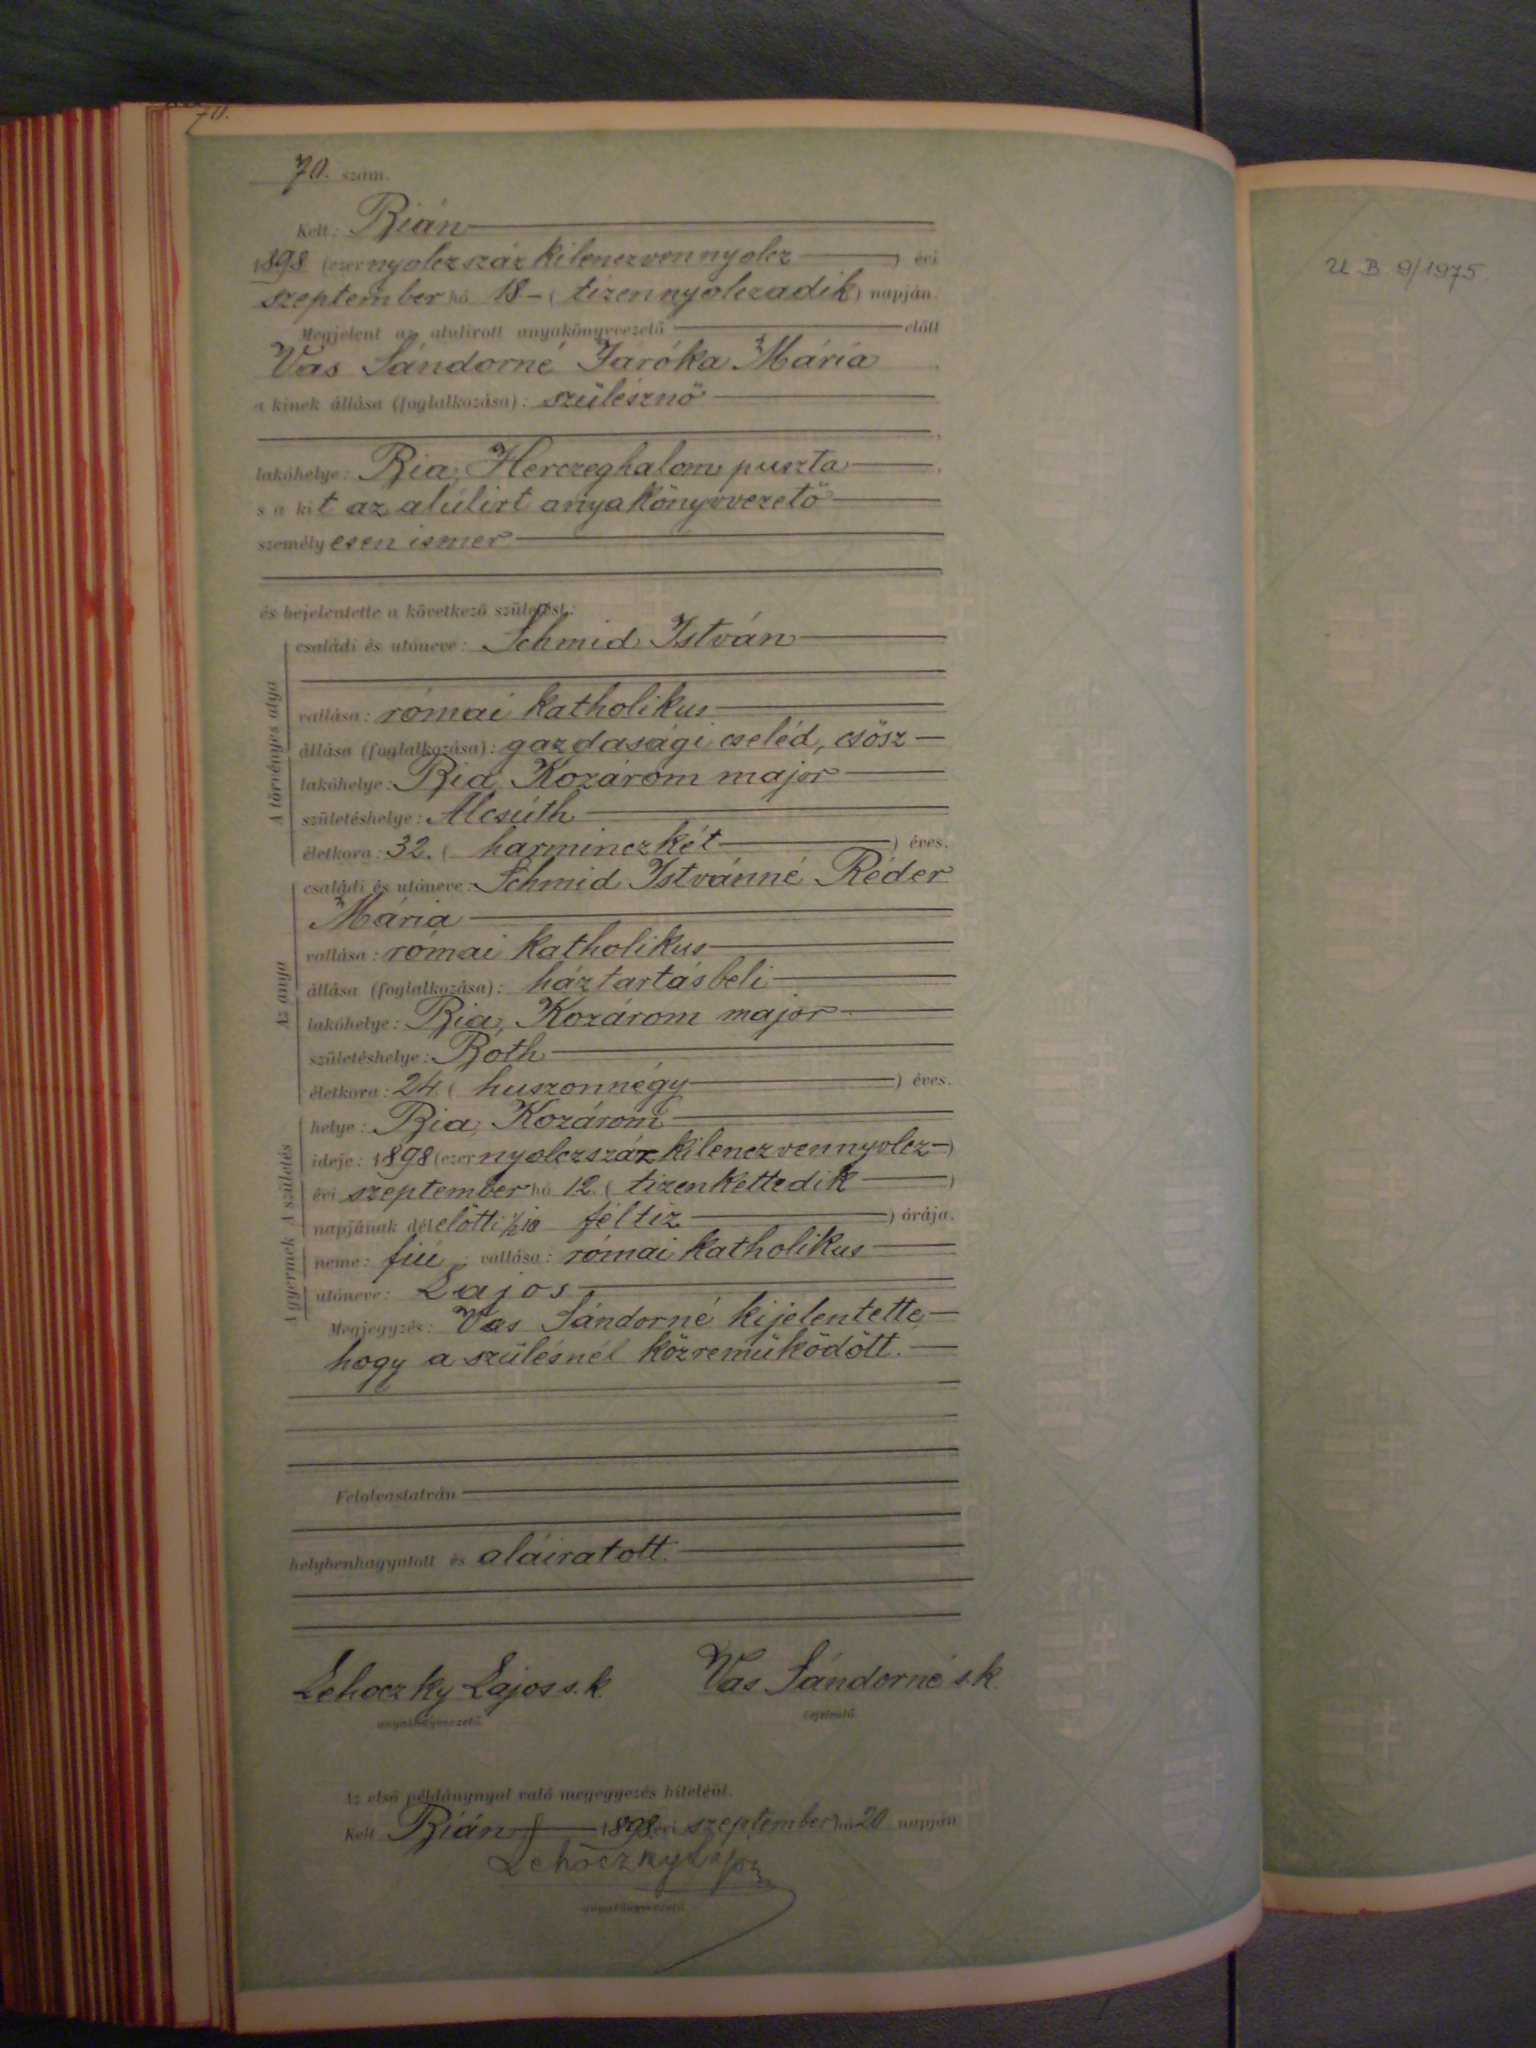 70.
70. szám.
Kelt: Bián
1898 (ezernyolczszáz kilenczvennyolcz) évi
szeptember hó 18 - (tizennyolczadik) napján.
Megjelent az alulirott anyakönyvvezető előtt
Vas Sándorné Jaróka Mária
a kinek állása (foglalkozása): szülésznő
lakóhelye: Bia, Herczeghalom puszta,
s a kit az alúlirt anyakönyvvezető
személyesen ismer
és bejelentette a következő születést:
A törvényes atya
családi és utóneve: Schmid István
vallása: római katholikus
állása (foglalkozása): gazdasági cseléd, csősz
lakóhelye: Bia, Kozárom major
születéshelye: Alcsúth
életkora: 32. (harminczkét) éves.
Az anya
családi és utóneve: Schmid Istvánné Réder
Mária
vallása: római katholikus
állása (foglalkozása): háztartásbeli
lakóhelye: Bia, Kozárom major
születéshelye: Both
életkora: 24 (huszonnégy) éves.
A születés
helye: Bia, Kozárom
ideje: 1898 (ezernyolczszáz kilenczvennyolcz)
évi szeptember hó 12. (tizenkettedik)
napjának délelőtti ½10 féltiz) órája.
A gyermek
neme: fiú; vallása: római katholikus
utóneve: Lajos
Megjegyzés: Vas Sándorné kijelentette,
hogy a szülésnél közreműködött.
Felolvastatván
helybenhagyatott és aláiratott.
Lehoczky Lajos s.k. Vas Sándorné s.k.
anyakönyvvezető. bejelentő.
Az első példánynyal való megegyezés hiteléül.
Kelt Bián 1898 évi szeptember hó 20 napján
Lehoczky Lajos
anyakönyvvezető.
U B 9/1975